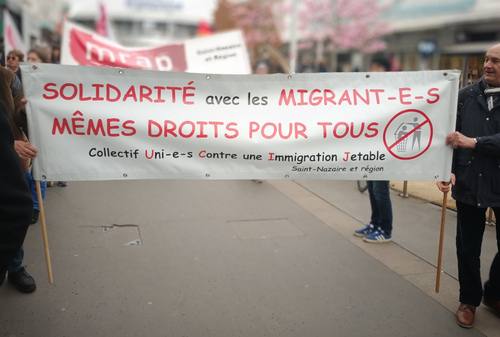 mrap
Saint-Nazaire
et Région
SOLIDARITÉ avec les MIGRANT-E-S
MÊMES DROITS POUR TOUS
Collectif Uni-e-s Contre une Immigration Jetable
Saint-Nazaire et région